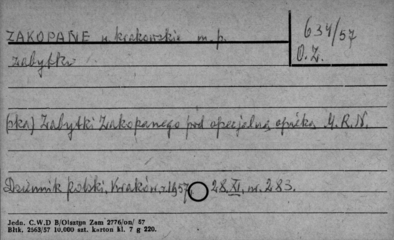 ZAKOPANE w. krakowskie m. p.
634/57
O.Z.
Zabytki
(ska) Zabytki Zakopanego pod specjalną opieką M.R.N.
Dziennik polski, Kraków r. 1957, 28.XI, nr. 283.
Jedn. C.W.D B/Olsztyn Zam 2776/on/ 57
Bltk. 2563/57 10.000 szt. karton kl. 7 g 220.